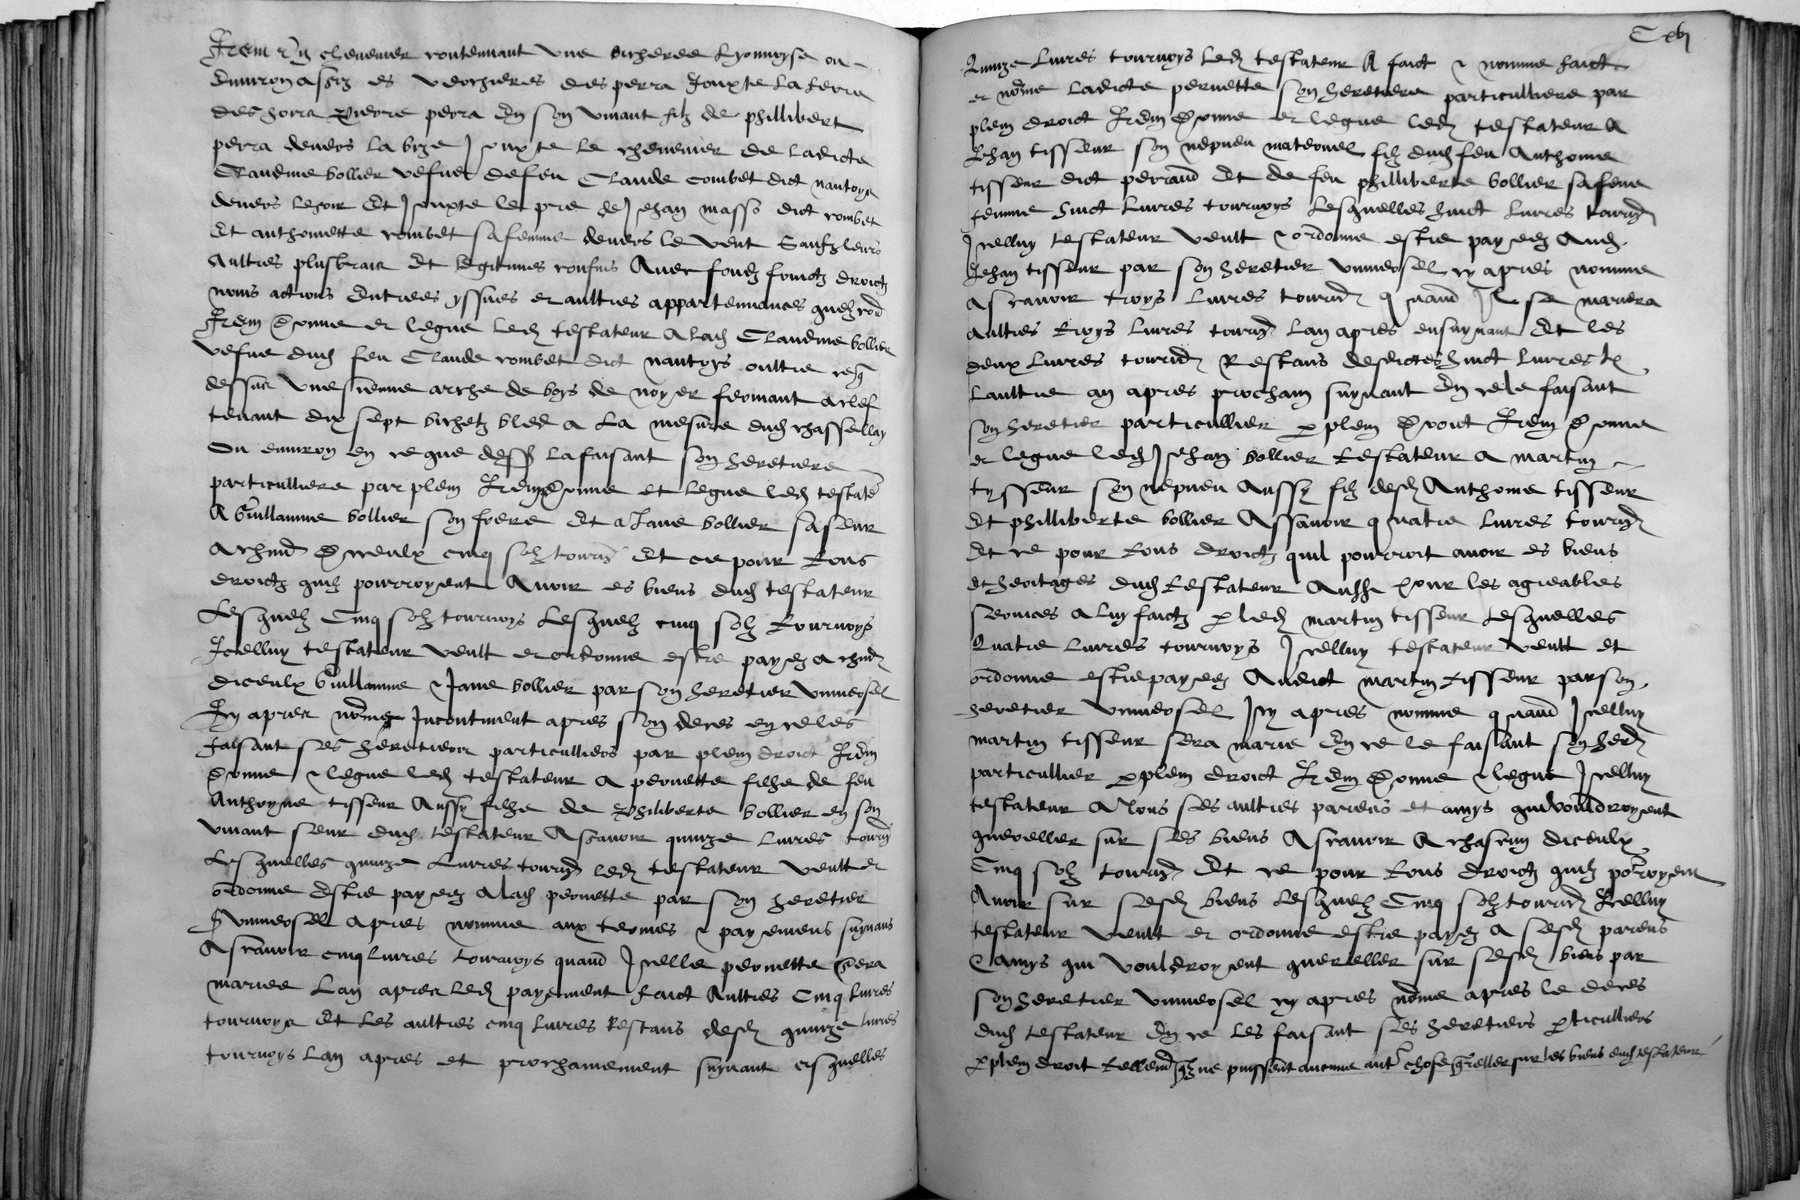 Item ung chenevier contennant une bicheree Lyonnoyse ou
Environ assiz es verchieres des perra Jouxte la terre
des hoirs pierre perra En son vivant filz de phillibert
perra devers la bize Jouxte le chenevier de ladicte
Claudine bollier vefue de feu Claude combet dict nantoys
devers le soir Et Jouxte le pre de Jehan masso dict combet
Et anthomette combet sa femme devers le vent Saufz leurs
Aultres plusbraie Et legitimes confins Avec fondz droictz
noms actions Entrees yssues et aultres appartennances quelzcond
Item donne et legue led testateur A lad Claudine bollier
vefue dud feu Claude combet dict nantoys oultre ce q
dessus une sienne arche de boys de noyer fermant a clef
tenant dix sept bichetz bled a La mesure dud chassellay
Ou environ en ce que dess la faisant son heretiere
particulliere par plem Item donne et legue led testate
A Guillaume bollier son frere Et a Jane bollier sa seur
A chund D'iceulx cinq solz tourn Et ce pour tous
droictz quilz pourroyent Avoir es biens dud testateur
Lesquelz Cinq solz tournoys Lesquelz cinq solz tournoys
Icelluy testateur veult et ordonne estre payez a chund
diceulx Guillaume & Jane bollier par son heretier universel
Cy apres nomme Incontinent apres son deces en ce les
faisant ses heretiers particulliers par plem droict Item
donne & legue led testateur A pernette filhe de feu
Anthoyne tisseur Aussy filhe de Philiberte bollier en son
vivant seur dud testateur Ascavoir quinze Livres tourn
Lesquelles quinze Livres tourn led testateur veult et
ordonne Estre payez A lad pernette par son heretier
universel apres nomme aux termes & payemens suyvans
Ascavoir cinq livres tournoys quand Icelle pernette sera
mariee Lan apres led payement faict Aultres Cinq livres
tournoys Et Les aultres cinq livres Restans desd quinze livres
tournoys Lan apres et prochainement suyvant esquelles
Cxvj
Quinze Livres tournoys Led testateur A faict & nomme faict
et nomme Ladicte pernette son heretiere particulliere par
plem droict Item Donne et legue led testateur A
Jehan tisseur son nepveu maternel filz dud feu Anthoine
tisseur dict perrand Et de feu philliberte bollier sa feue
femme huict Livres tournoys Lesquelles huict Livres tourn
Icelluy testateur veult & ordonne estre payez Aud
Jehan tisseur par son heretier universel cy apres nomme
Ascavoir troys Livres tourn quand Il se mariera
Aultres troys Livres tourn Lan apres ensuyvant Et les
deux Livres tourn Restans desdictes huict Livres
Laultre an apres prochain suyvant En ce le faisant
son heretier particullier p plem Droict Item Donne
et legue led Jehan bollier testateur A martin
tysseur son nepveu Aussy filz desd Anthoine tisseur
Et philliberte bollier Assavoir quatre Livres tourn
Et ce pour tous droictz quil pourroit avoir es biens
et heritages dud testateur Aussi pour les agreables
services A luy faictz p led martin tisseur Lesquelles
Quatre Livres tournoys Icelluy testateur veult Et
ordonne estre payez Audict martin tisseur par son
heretier universel Icy apres nomme quand Icelluy
martin tisseur sera marie En ce le faisant son hered
particullier p plem droict Item Donne & legue Icelluy
testateur A tous ses aultres parens et amys qui vouldroyent
quereller sur ses biens Ascavoir A chascun diceulx
Cinq solz tourn Et ce pour tous droictz quilz porroyent
Avoir sur sesd biens Lesquelz Cinq solz tourn Icelluy
testateur veult et ordonne estre payez A sesd parens
& amys qui vouldroyent quereller sur sesd biens par
son heretier universel cy apres nomme apres le deces
dud testateur En ce Les faisant ses heretiers pticulliers
p plem droit tellemd qlz ne puissent aucune autr chose qreller sur les biens dud testateur